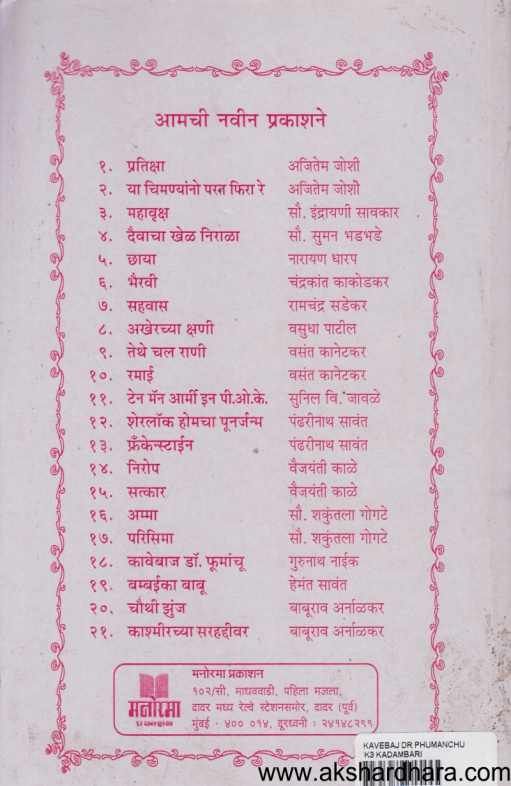 आमची नवीन प्रकाशने
१. प्रतिक्षा अजितेम जोशी
२. या चिमण्यांनो परत फिरा रे अजितेम जोशी
३. महावृक्ष सौ. इंद्रायणी सावकार
४. दैवाचा खेळ निराळा सौ. सुमन भडभडे
५. छाया नारायण धारप
६. भैरवी चंद्रकांत काकोडकर
७. सहवास रामचंद्र सडेकर
८. अखेरच्या क्षणी वसुधा पाटील
९. तेथे चल राणी वसंत कानेटकर
१०. रमाई वसंत कानेटकर
११. टेन मॅन आर्मी इन पी.ओ.के. सुनिल वि. जावळे
१२. शेरलॉक होमचा पूनर्जन्म पंढरीनाथ सावंत
१३. फ्रँकेन्स्टाईन पंढरीनाथ सावंत
१४. निरोप वैजयंती काळे
१५. सत्कार वैजयंती काळे
१६. अम्मा सौ. शकुंतला गोगटे
१७. परिसिमा सौ. शकुंतला गोगटे
१८. कावेबाज डॉ. फूमांचू गुरुनाथ नाईक
१९. बम्बईका बाबू हेमंत सावंत
२०. चौथी झुंज बाबूराव अर्नाळकर
२१. काश्मीरच्या सरहद्दीवर बाबूराव अर्नाळकर
मनोरमा
प्रकाशन
मनोरमा प्रकाशन
१०२/सी, माधववाडी, पहिला मजला,
दादर मध्य रेल्वे स्टेशनसमोर, दादर (पूर्व)
मुंबई - ४०० ०१४. दूरध्वनी : २४१४८२९९
KAVEBAJ DR PHUMANCHU
K3 KADAMBARI
www.akshardhara.com